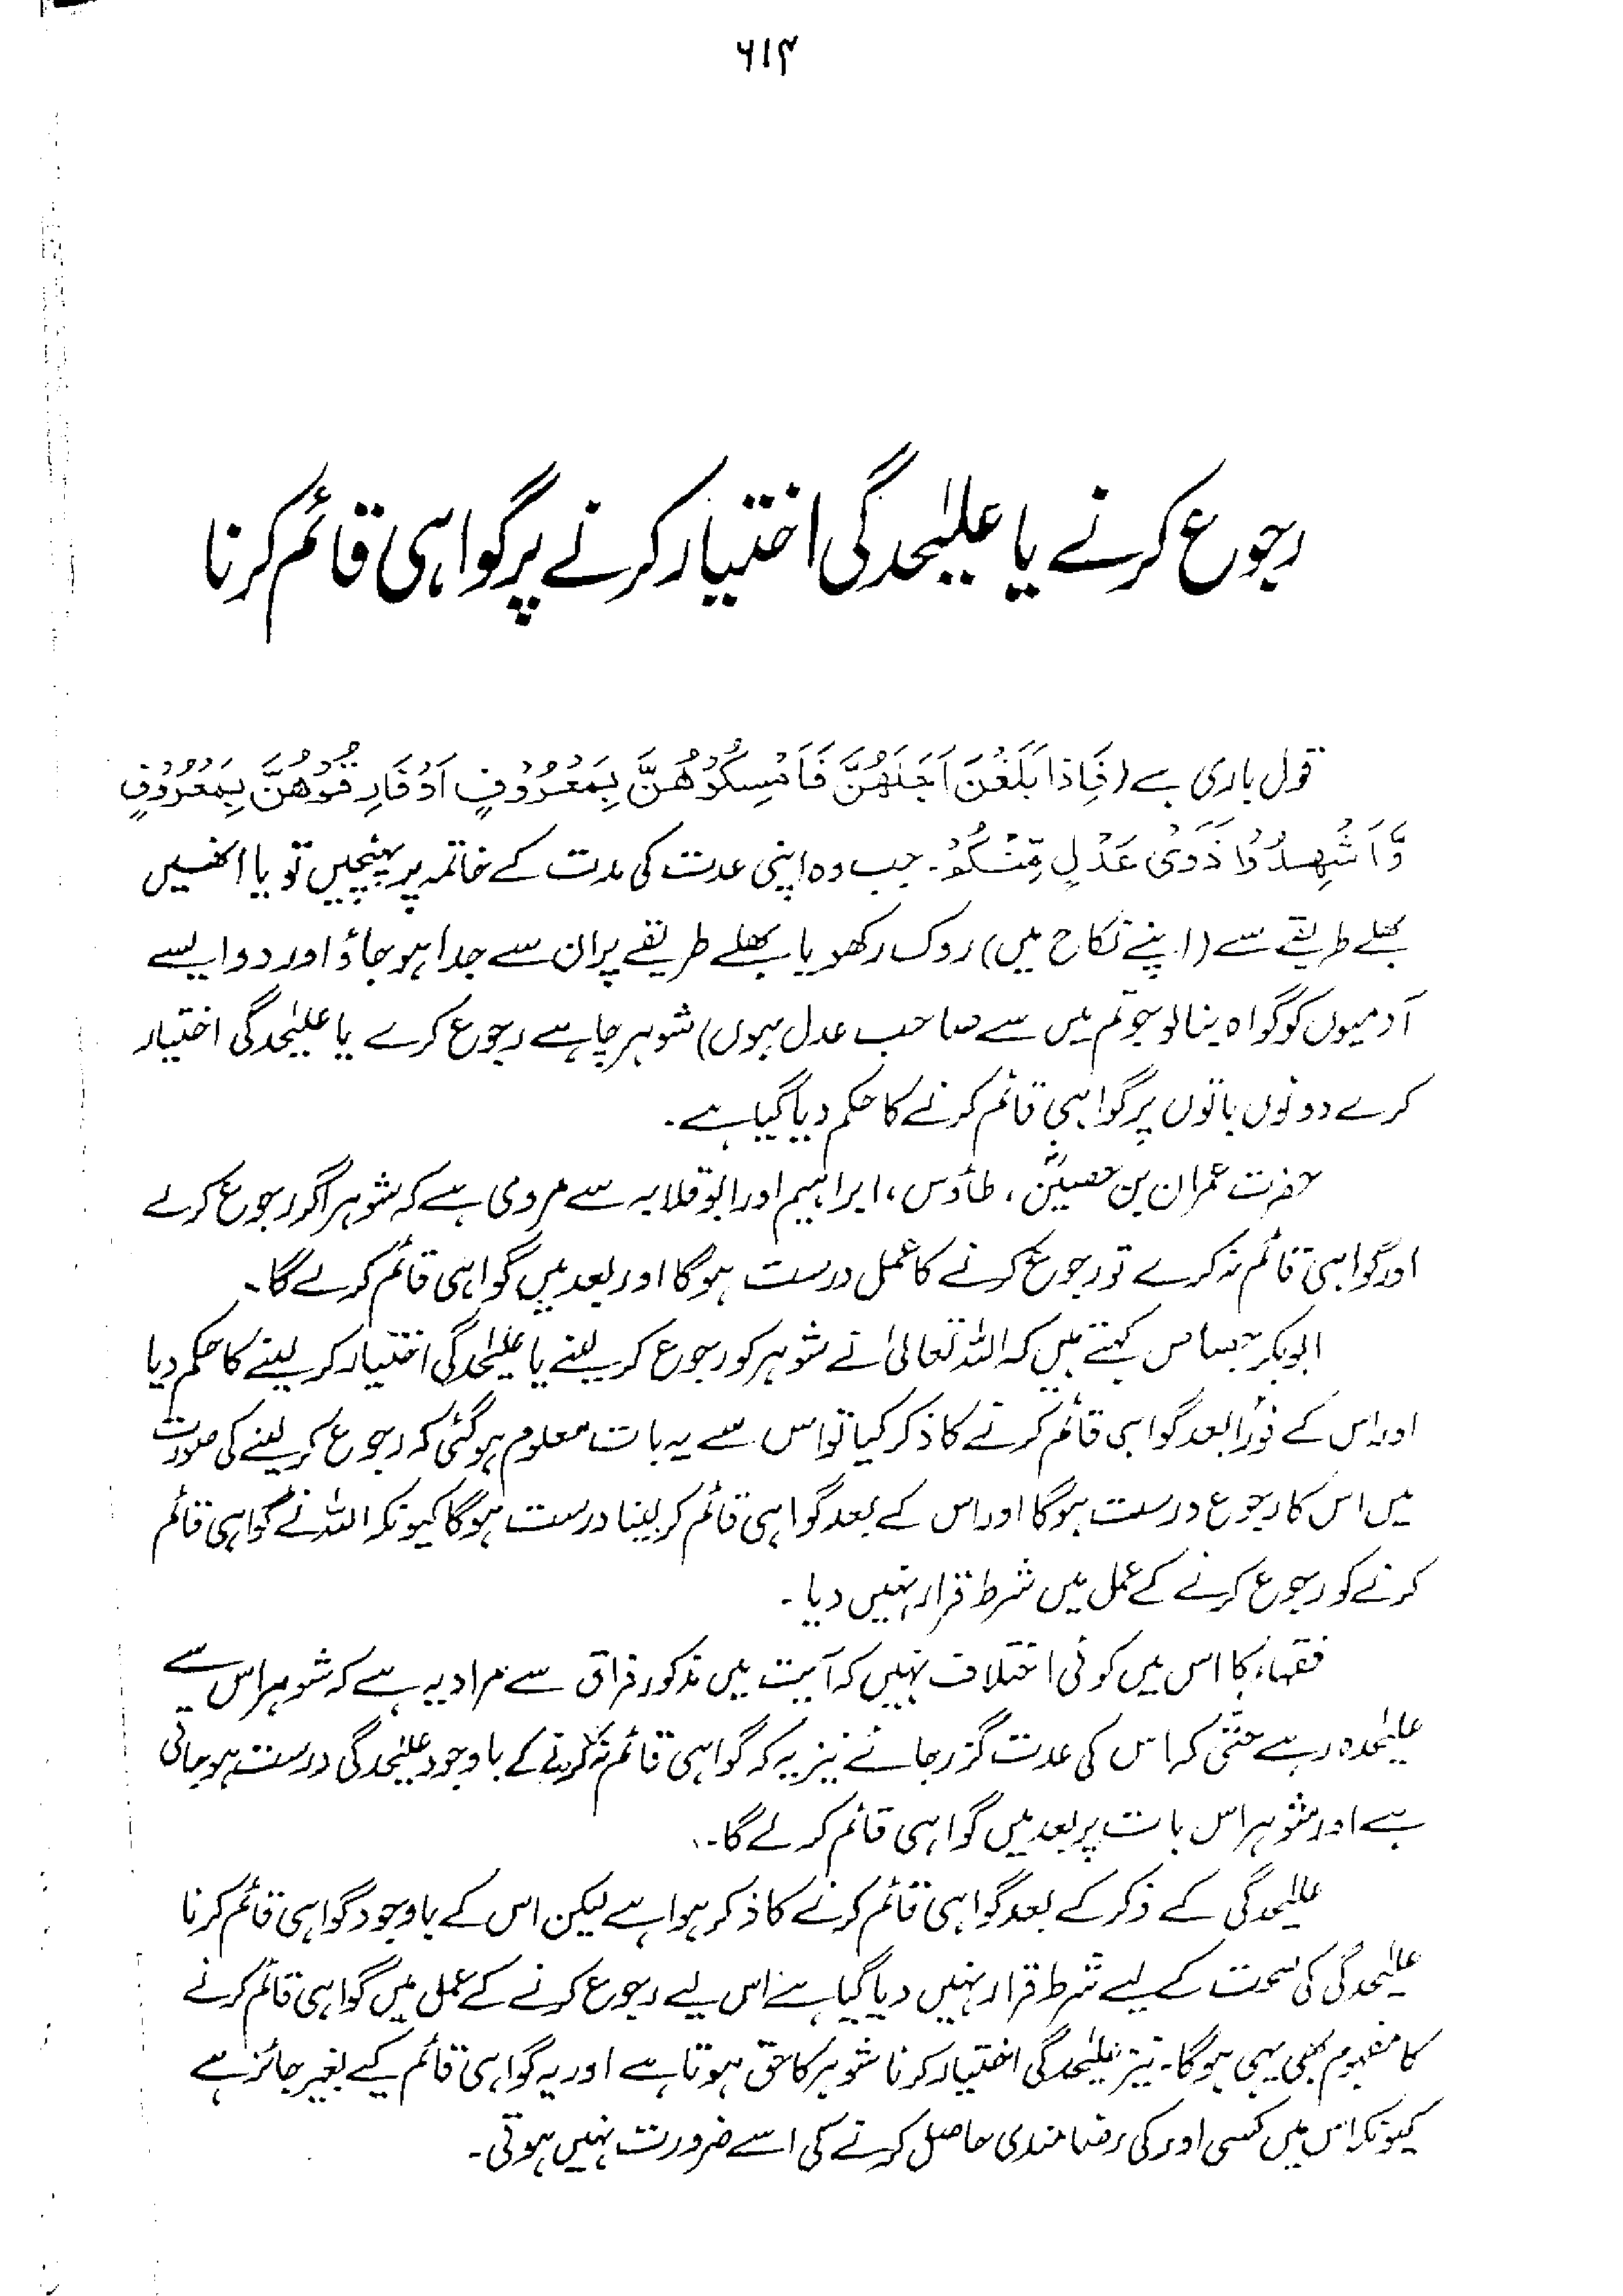 ۶۱۴
رجوع کرنے یا علیٰحدگی اختیار کرنے پر گواہی قائم کرنا
قول باری ہے (فَاِذَا بَلَغْنَ اَجَلَهُنَّ فَاَمْسِكُوْهُنَّ بِمَعْرُوْفٍ اَوْ فَارِقُوْهُنَّ بِمَعْرُوْفٍ
وَّاَشْهِدُوْا ذَوَىْ عَدْلٍ مِّنْكُمْ۔ جب وہ اپنی عدت کی مدت کے خاتمہ پر پہنچیں تو یا انھیں
بھلے طریقے سے (اپنے نکاح میں) روک رکھو یا بھلے طریقے پر ان سے جدا ہو جاؤ اور دو ایسے
آدمیوں کو گواہ بنا لو جو تم میں سے صاحب عدل ہوں) شوہر چاہے رجوع کرے یا علیٰحدگی اختیار
کرے دونوں باتوں پر گواہی قائم کرنے کا حکم دیا گیا ہے۔
حضرت عمران بن حصینؓ، طاؤس، ابراہیم اور ابو قلابہ سے مروی ہے کہ شوہر اگر رجوع کر لے
اور گواہی قائم نہ کرے تو رجوع کرنے کا عمل درست ہوگا اور بعد میں گواہی قائم کر لے گا۔
ابوبکر جصاص کہتے ہیں کہ اللہ تعالیٰ نے شوہر کو رجوع کر لینے یا علیٰحدگی اختیار کر لینے کا حکم دیا
اور اس کے فوراً بعد گواہی قائم کرنے کا ذکر کیا تو اس سے یہ بات معلوم ہو گئی کہ رجوع کر لینے کی صورت
میں اس کا رجوع درست ہوگا اور اس کے بعد گواہی قائم کر لینا درست ہوگا کیونکہ اللہ نے گواہی قائم
کرنے کو رجوع کرنے کے عمل میں شرط قرار نہیں دیا۔
فقہاء کا اس میں کوئی اختلاف نہیں کہ آیت میں مذکور فراق سے مراد یہ ہے کہ شوہر اس سے
علیٰحدہ رہے حتیٰ کہ اس کی عدت گزر جائے نیز یہ کہ گواہی قائم نہ کرنے کے باوجود علیٰحدگی درست ہو جاتی
ہے اور شوہر اس بات پر بعد میں گواہی قائم کر لے گا۔
علیٰحدگی کے ذکر کے بعد گواہی قائم کرنے کا ذکر ہوا ہے لیکن اس کے باوجود گواہی قائم کرنا
علیٰحدگی کی صحت کے لیے شرط قرار نہیں دیا گیا ہے اس لیے رجوع کرنے کے عمل میں گواہی قائم کرنے
کا مفہوم بھی یہی ہوگا۔ نیز علیٰحدگی اختیار کرنا شوہر کا حق ہوتا ہے اور یہ گواہی قائم کیے بغیر جائز ہے
کیونکہ اس میں کسی اور کی رضامندی حاصل کرنے کی اسے ضرورت نہیں ہوتی۔